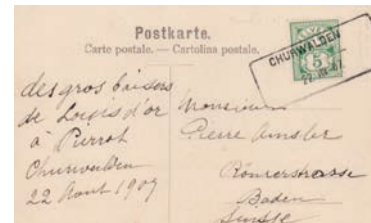 Postkarte.
Carte postale. — Cartolina postale.
HELVETIA
5
CHURWALDEN
22.VIII.07
des gros baisers
de Louis d'or
à Pierrot
Churwalden
22 Aout 1907
Monsieur
Pierre Amsler
Römerstrasse
Baden
Suisse